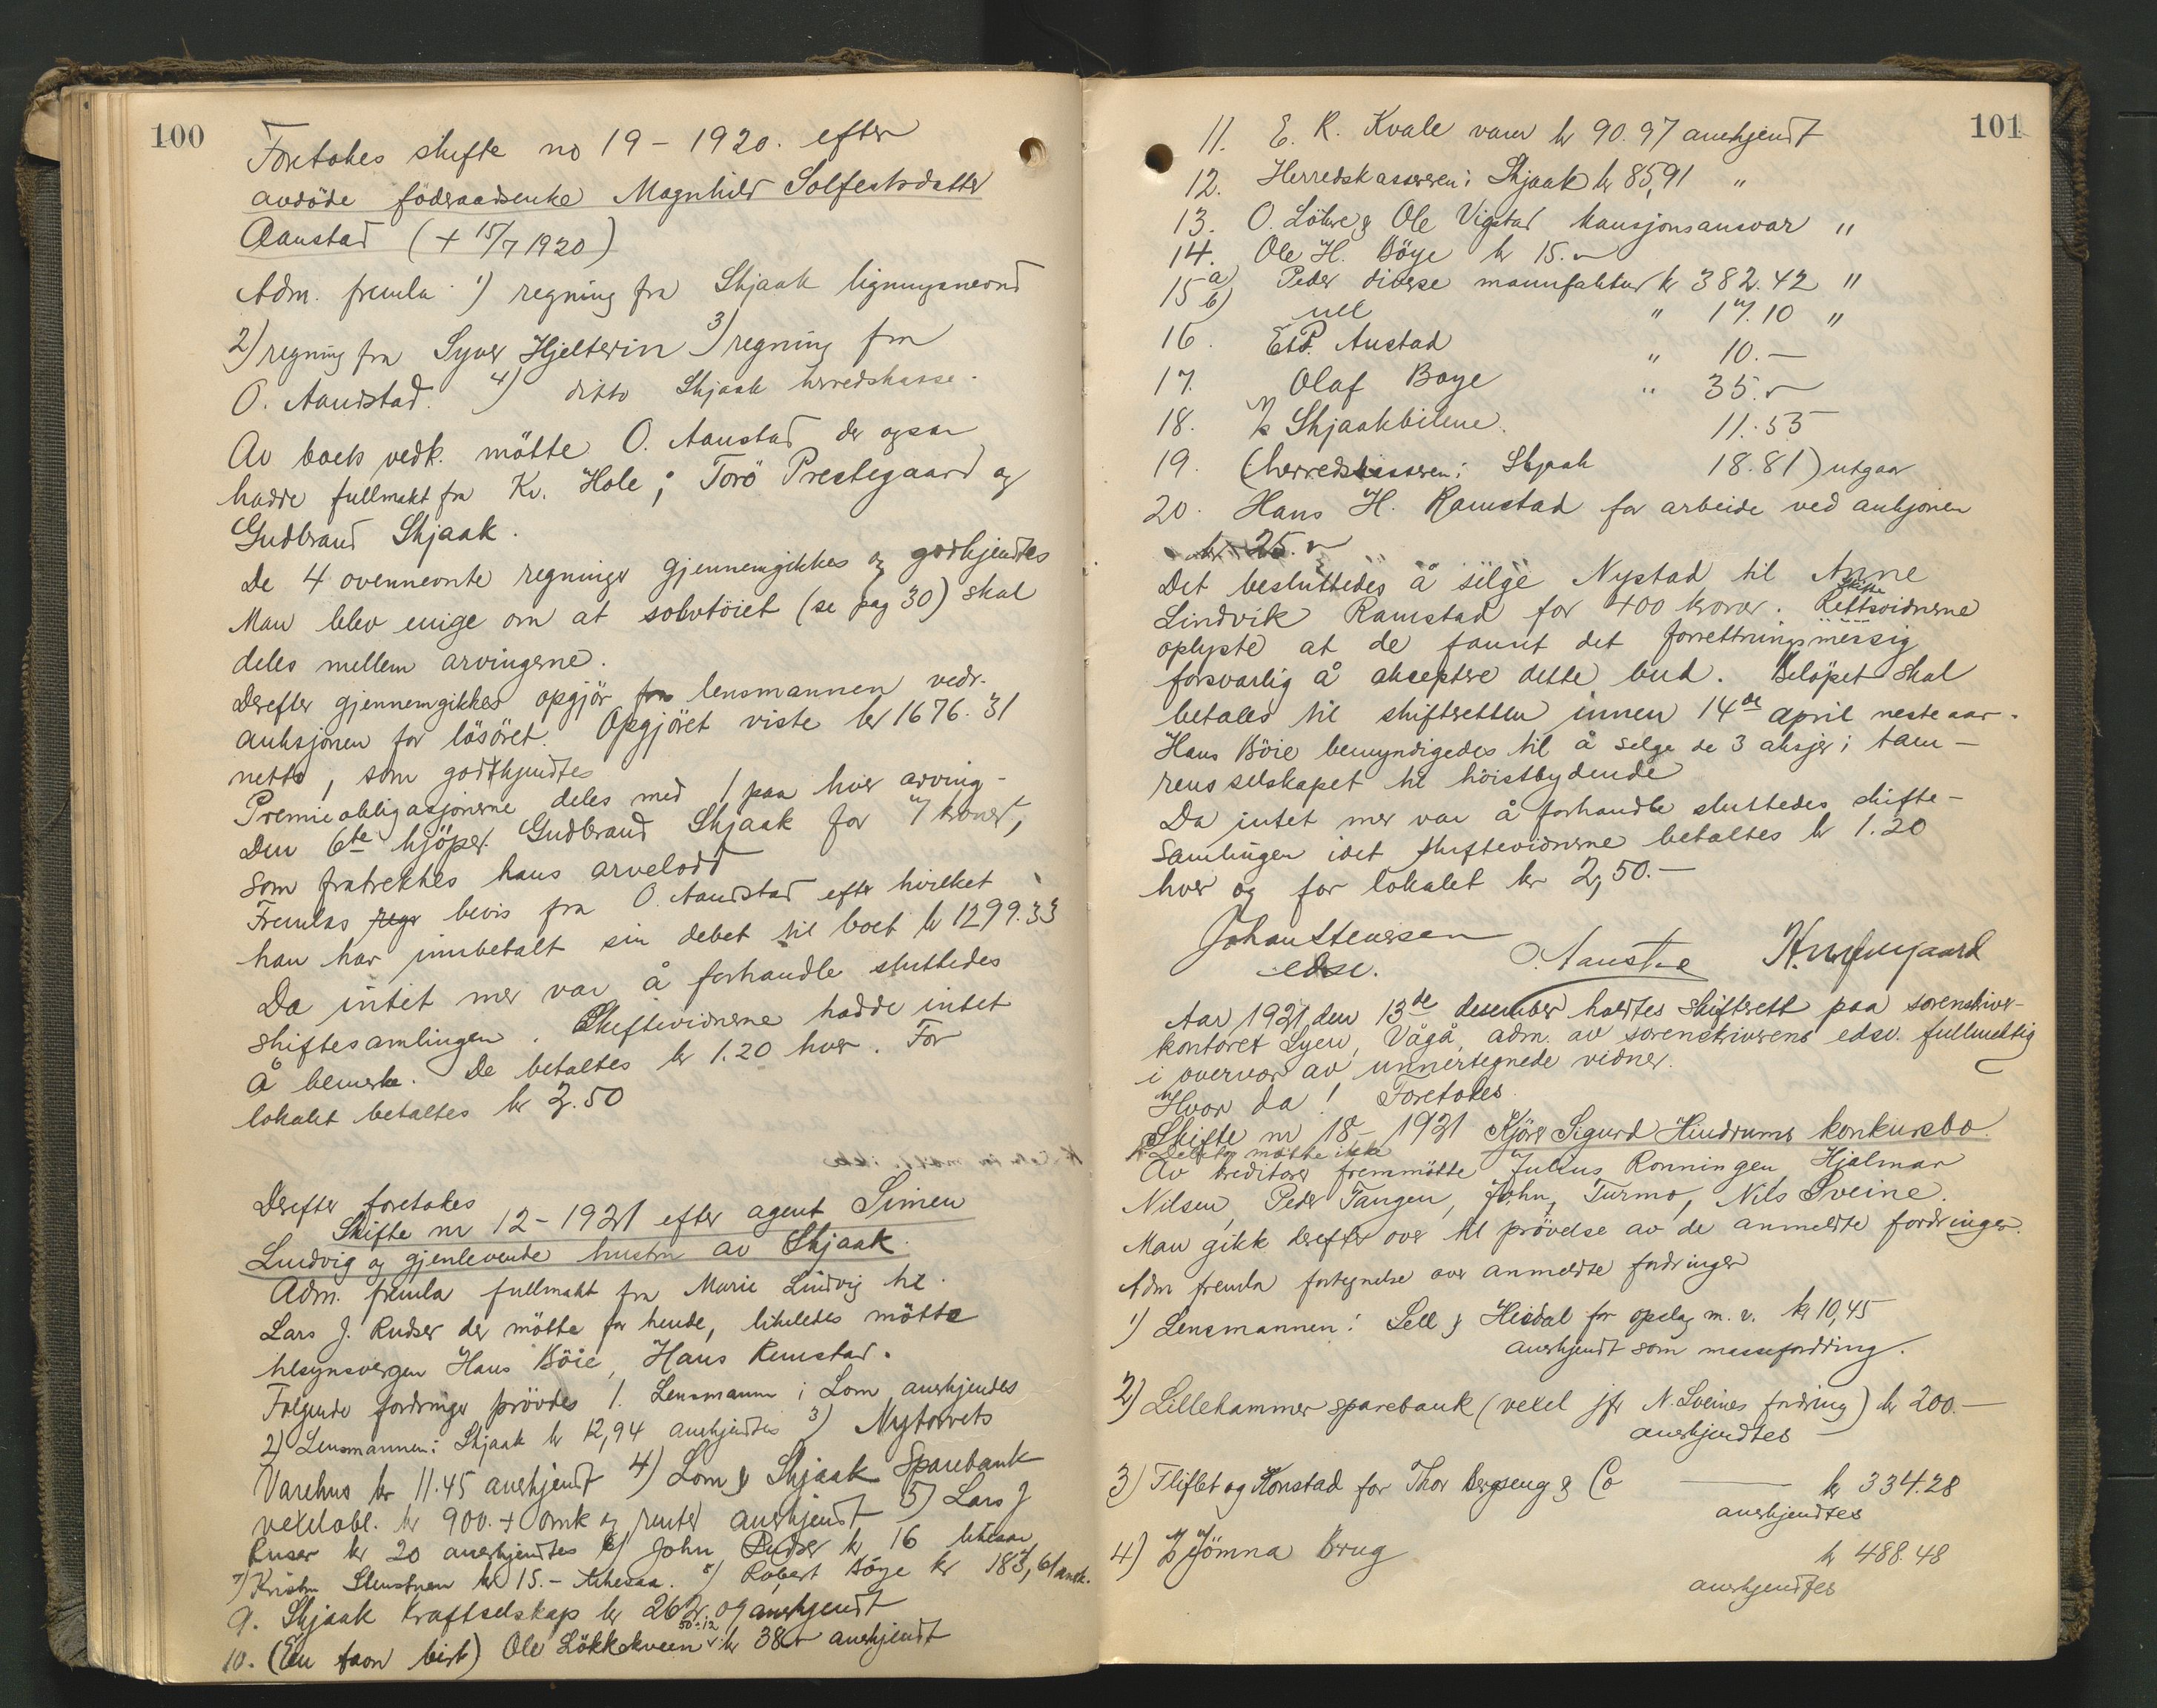 100
Foretokes skifte no 19 - 1920. efter
avdöde föderaadsenke Magnhild Solfestsdatter
Aanstad (+ 15/7 1920)
Adm. fremla 1) regning fra Skjaak ligningsnevnd
2) regning fra Syver Hjelterin 3) regning fra
O. Aandstad. 4) ditto Skjaak herredskasse.
Av boets vedk. mötte O. Aanstad der ogsaa
hadde fullmakt fra Kv. Hole; Torö Prestegaard og
Gudbrand Skjaak.
De 4 ovennevnte regninger gjennemgikkes og godkjendtes
Man blev enige om at solvtöiet (se pag 30) skal
deles mellem arvingerne.
Derefter gjennemgikkes opgjör fra lensmannen vedr.
auksjonen for lösöret. Opgjöret viste kr 1676.31
netto, som godtkjendtes
Premieobligasjonerne deles med 1 paa hver arving -
Den 6te kjöper Gudbrand Skjaak for 7 kroner,
som fratrekkes hans arvelodd
Fremlas regn bevis fra O. Aandstad efter hvilket
han har innbetalt sin debet til boet kr 1299.33
Da intet mer var å forhandle sluttedes
skiftesamlingen. Skiftevidnerne hadde intet
å bemerke. De betaltes kr 1.20 hver. For
lokalet betaltes kr 2.50
Derefter foretokes
Skifte nr 12 - 1921 efter agent Simen
Lindvig og gjenlevende hustru av Skjaak.
Adm. fremla fullmakt fra Marie Lindvig til
Lars J. Rudser der mötte for hende, likeledes mötte
tilsynsvergen Hans Böie, Hans Ramstad.
Folgende fordringer prövdes 1. Lensmannen i Lom anerkjendes
2) Lensmannen i Skjaak kr 12,94 anerkjendtes 3) Nytorvets
Varehus kr 11.45 anerkjendt 4) Lom & Skjaak Sparebank
vexelobl. kr 900.+ omk og renter anerkjendt 5) Lars J
Ruser kr 20 anerkjendtes 6) John Rudser kr 16 likesaa
7) Kristen Stenstuen kr 15.- likesaa. 8) Robert Böye kr 183,61 anerk.
9. Skjaak Kraftselskap kr 262.09 anerkjendt
50÷12
10. (En faon birk) Ole Lökkekveen kr 38.- anerkjendt
101
11. E. R. Kvale varer kr 90.97 anerkjendt
12. Herredskassereren i Skjaak kr 85,91 "
13. O. Lökre & Ole Vigstad kausjonsansvar "
14. Ole H. Böye kr 15.-
15 a) Peder diverse manufaktur kr 382.42 "
15 b) ull " 17.10 "
16. E. P. Austad " 10.-
17. Olaf Boye " 35.-
18. A/s Skjaakbilene. 11.55
19. (herredskasseren i Skjaak 18.81) utgaar
20. Hans H. Ramstad for arbeide ved auksjonen
kr 25.-
Det besluttedes å selge Nystad til Anne
Lindvik Ramstad for 400 kroner. Rettsvidnerne
skifte
oplyste at de fannt det forrettningsmessig
forsvarlig å akseptere dette bud. Belöpet skal
betales til skifteretten innen 14de april neste aar.
Hans Böie bemyndigedes til å selge de 3 aksjer i tam-
rensselskapet til höistbydende
Da intet mer var å forhandle sluttedes skifte-
samlingen idet skiftevidnerne betaltes kr 1.20
hver og for lokalet kr 2,50.-
Johan Stenersen
edsv.
Aar 1921 den 13de desember holdtes skifterett paa sorenskriver-
kontoret Lyen, Vågå, adm. av sorenskriverens edsv. fullmektig
i overvær av unnertegnede vidner.
Hvor da! Foretokes
Skifte nr 18 - 1921 Kjörer Sigurd Hindrums konkursbo.
Debitor mötte ikke
Av kreditorer fremmötte Julius Ronningen Hjalmar
Nilsen, Peder Tangen, John Turmo, Nils Sveine.
Man gikk derefter over til prövelse av de anmeldte fordringer.
Adm fremla fortegnelse over anmeldte fordringer
1) Lensmannen i Sell & Heidal for opslag m. v. kr 10,45
anerkjendt som massefordring.
2) Lillehammer sparebank (vexel jfr N. Sveines fordring) kr 200.-
anerkjendtes
3) Fliflet og Konstad for Thor Bergseng & Co kr 334.28
anerkjendtes
4) A/S Jömna Brug kr 488.48
anerkjendtes